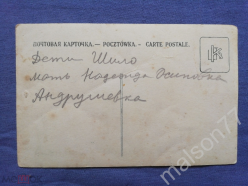 ПОЧТОВАЯ КАРТОЧКА. — POCZTÓWKA. — CARTE POSTALE.
Дети Шило
мать Надежда Осиповна
Андрушевка
malson77